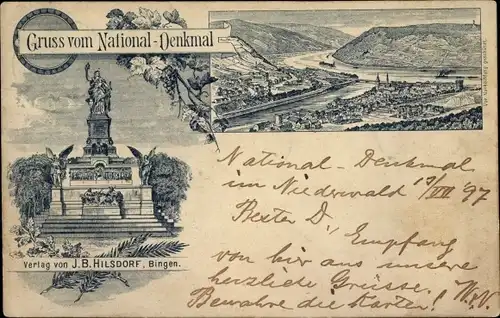 Gruss vom National-Denkmal
Verlag von J.B. HILSDORF, Bingen.
National-Denkmal
im Niederwald 17/VII '97
Bester D., Empfang
von hier aus unsere
herzliche Grüsse.
Bewahre die Karten! W.v.V.